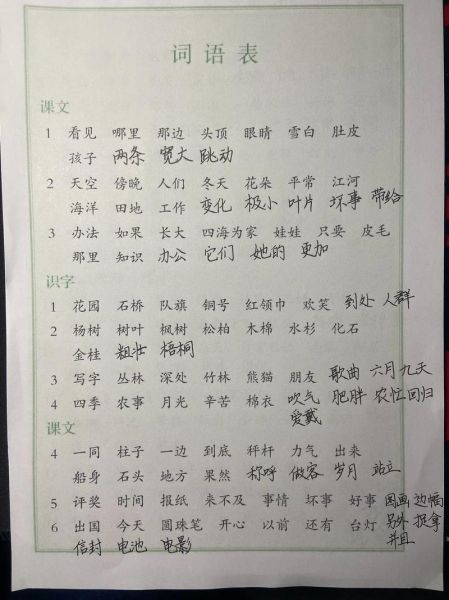 词语表
课文
1 看见 哪里 那边 头顶 眼睛 雪白 肚皮
孩子 两条 宽大 跳动
2 天空 傍晚 人们 冬天 花朵 平常 江河
海洋 田地 工作 变化 极小 叶片 坏事 带给
3 办法 如果 长大 四海为家 娃娃 只要 皮毛
那里 知识 办公 它们 她的 更加
识字
1 花园 石桥 队旗 铜号 红领巾 欢笑 到处 人群
2 杨树 树叶 枫树 松柏 木棉 水杉 化石
金桂 粗壮 梧桐
3 写字 丛林 深处 竹林 熊猫 朋友 歌曲 六月 九天
4 四季 农事 月光 辛苦 棉衣 吹气 肥胖 农忙 回归
爱戴
课文
4 一同 柱子 一边 到底 秤杆 力气 出来
船身 石头 地方 果然 称呼 做客 岁月 站立
5 评奖 时间 报纸 来不及 事情 坏事 好事 国画 边幅
6 出国 今天 圆珠笔 开心 以前 还有 台灯 另外 捉拿
信封 电池 电影 并且